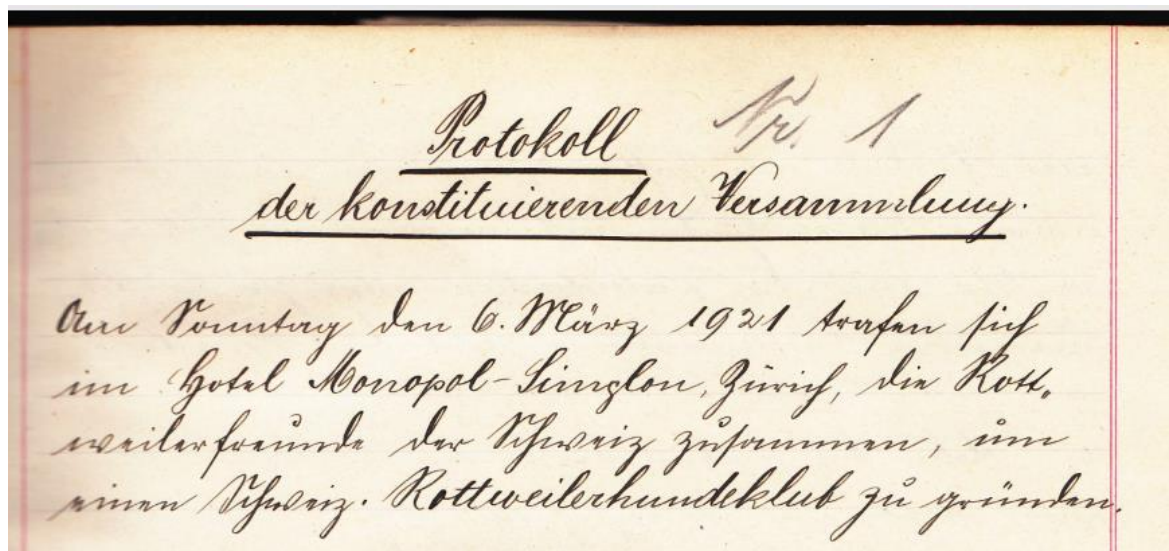 Protokoll Nr. 1
der konstituierenden Versammlung.
Am Sonntag den 6. März 1921 trafen sich
im Hotel Monopol-Simplon, Zürich, die Rott-
weilerfreunde der Schweiz zusammen, um
einen Schweiz. Rottweilerhundeklub zu gründen.